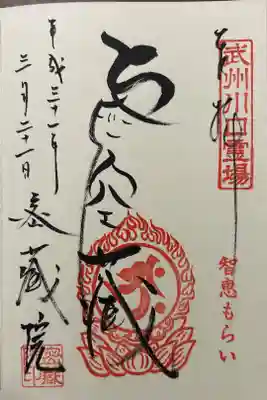 武州川口靈場
奉拝
智恵もらい
虚空蔵
平成三十一年
三月二十一日
密蔵院